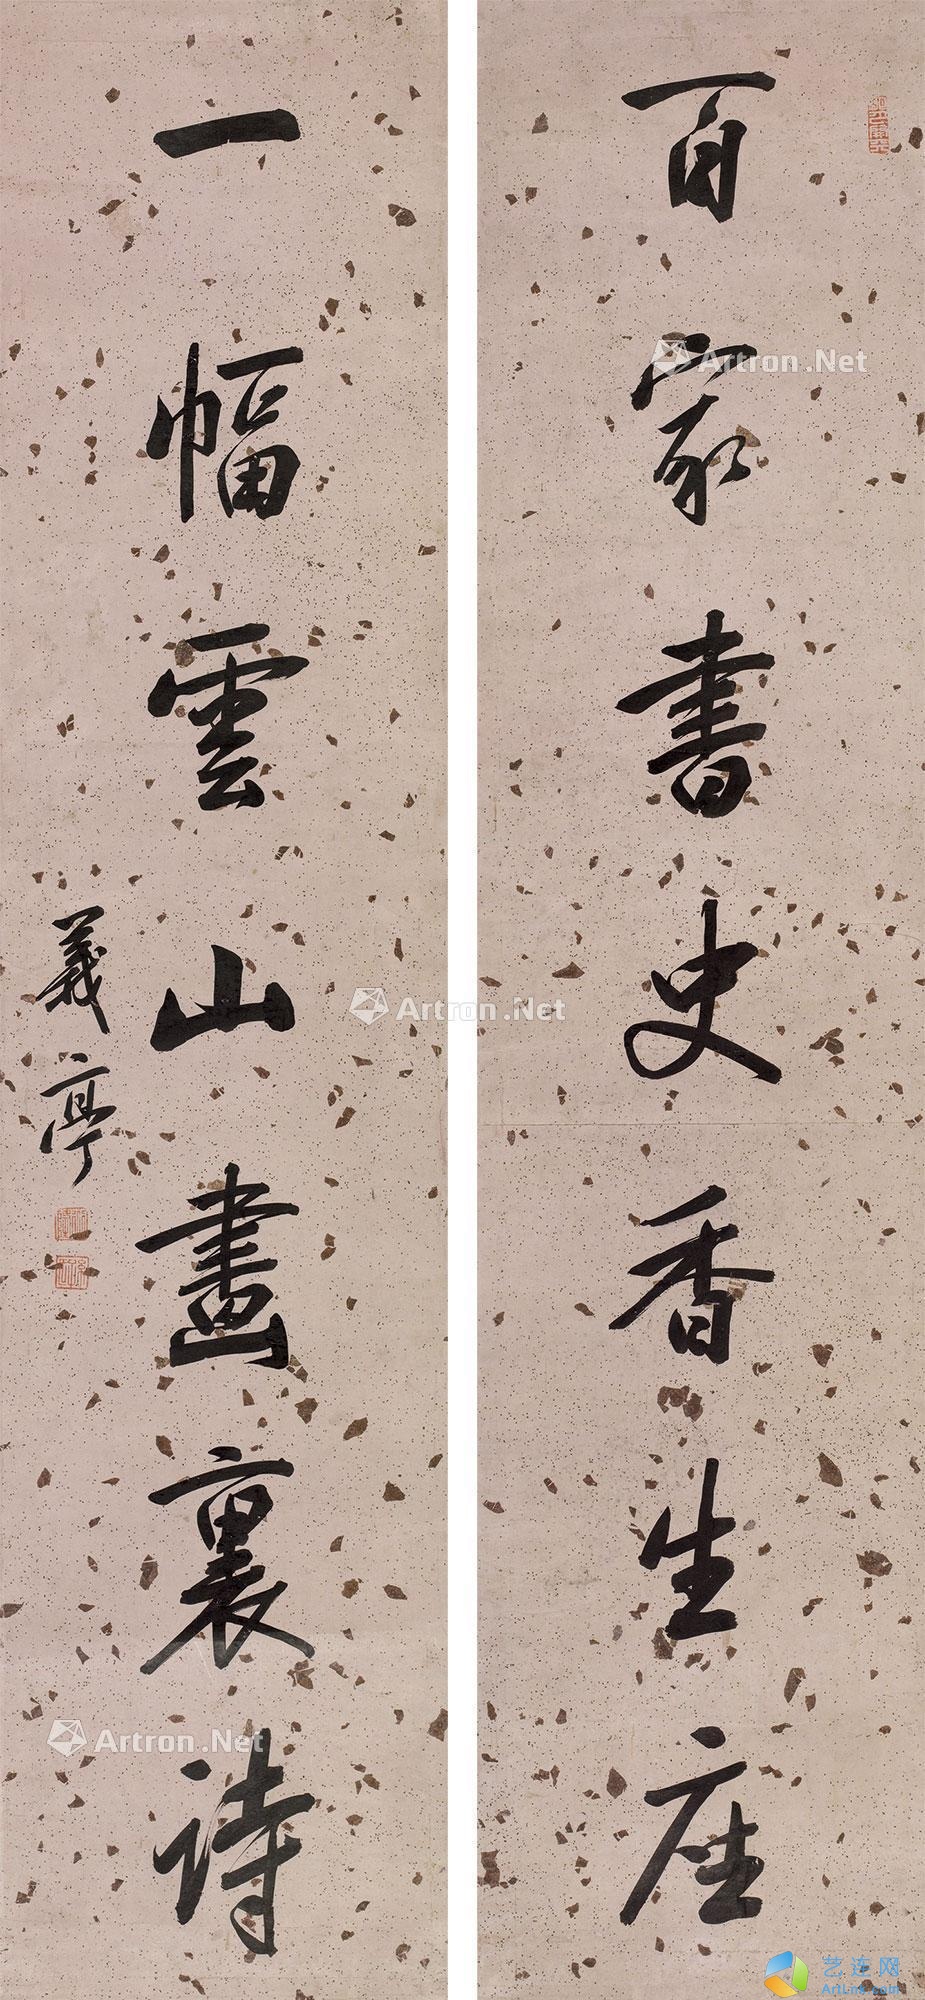 百家書史香生座
一幅雲山畫裏詩
義亭
Artron.Net
Artron.Net
Artron.Net
艺连网
ArtLnk.com